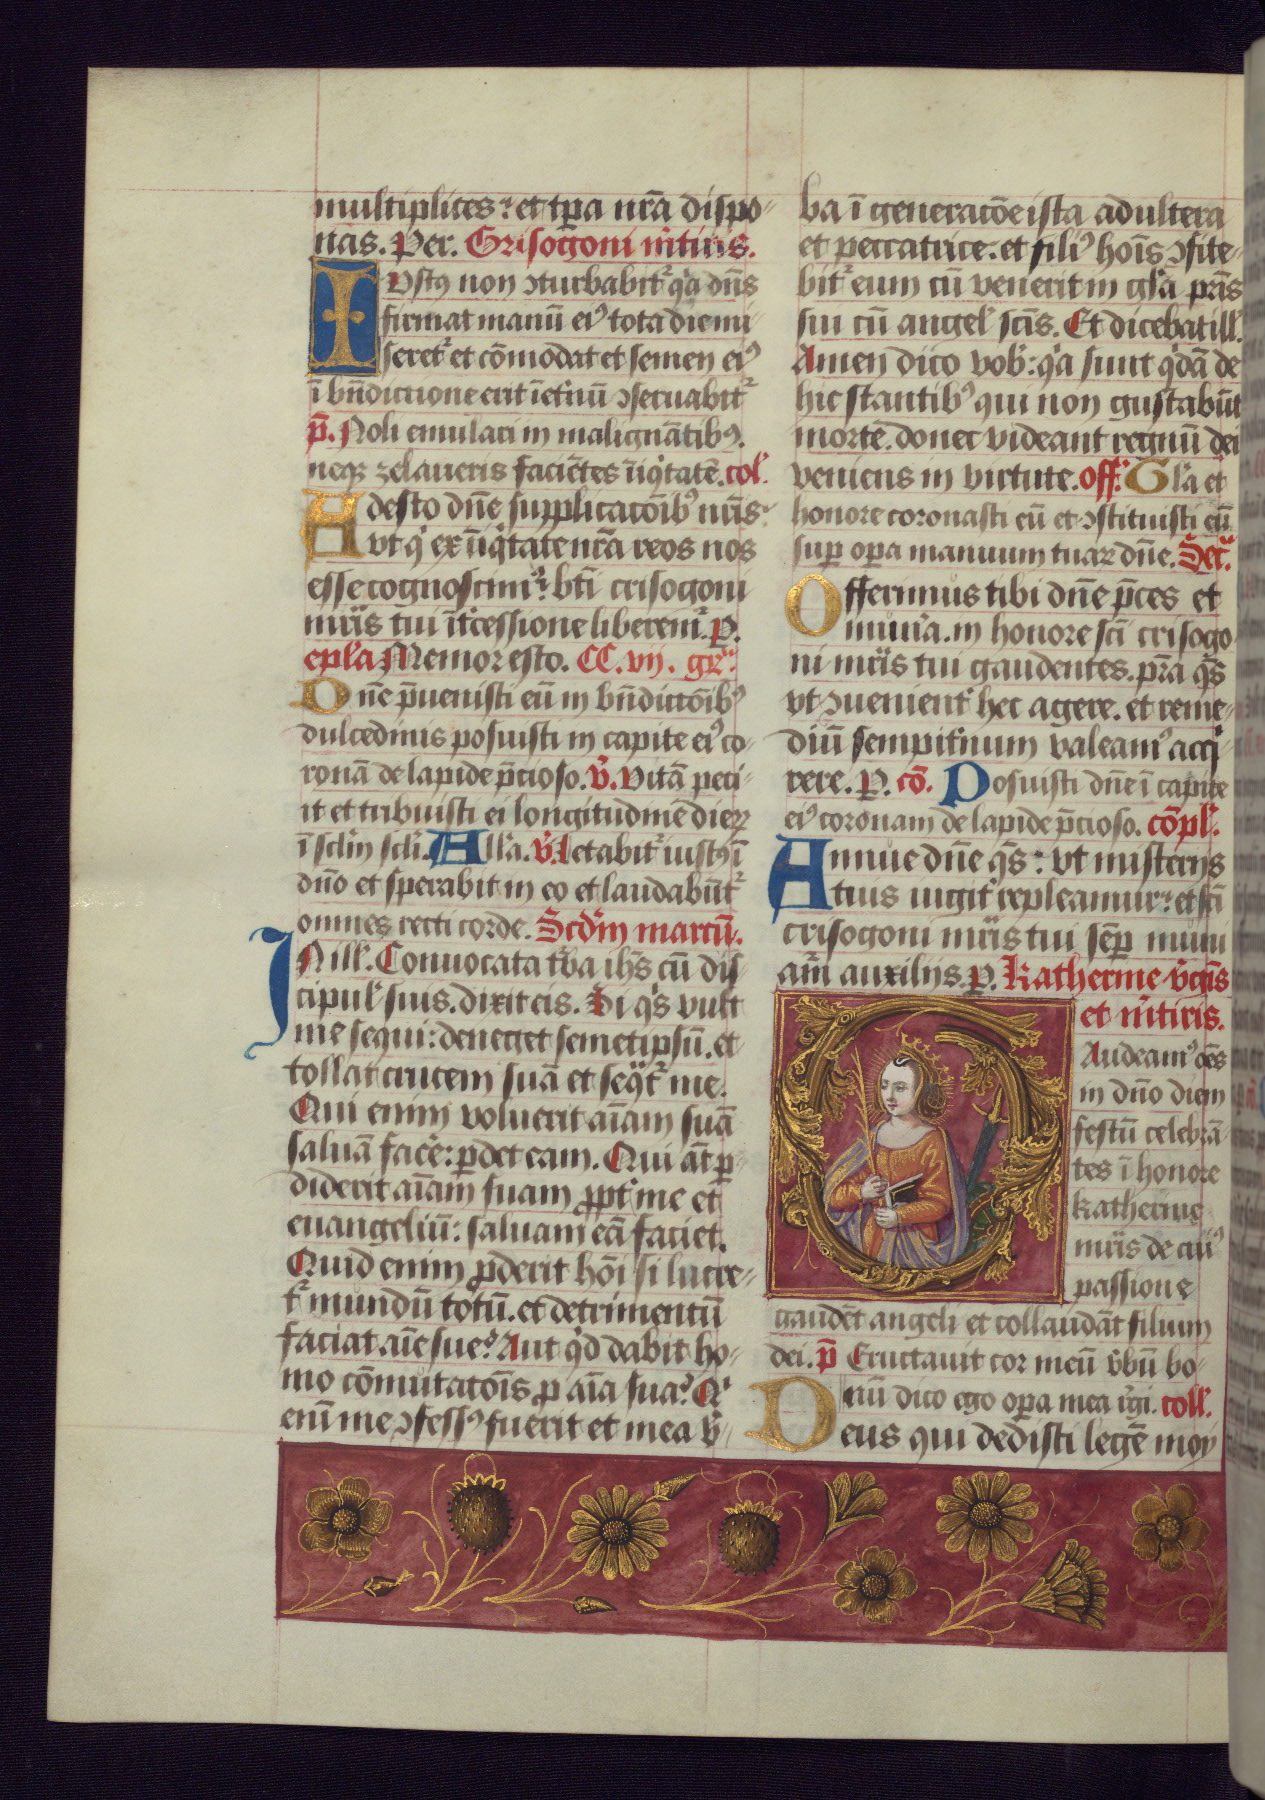 multiplices: et tp̄a nr̄a dispo-
nas. Per. Grisogoni m̄tiris.
Iustꝰ non ↄturbabit᷑ qͥa dn̄s
firmat manū eiꝰ tota die mi-
seret᷑ et cōmodat et semen eiꝰ
ī bn̄dictione erit īet̓nū ↄseruabit᷑
p̄. Noli emulari in malignātibꝰ.
neqꝫ zelaueris faciētes īiqͥtatē. col᷑.
Adesto dn̄e supplicacōibꝰ nr̄is:
vt qͥ ex īiqͥtate nr̄a reos nos
esse cognoscimꝰ: bt̄i crisogoni
mr̄is tui īt̓cessione liberem᷑. P.
ep̄la Memor esto. CC. vij. gr̄.
Dn̄e p̄uenisti eū in bn̄dictōibꝰ
dulcedinis posuisti in capite eiꝰ co-
ronā de lapide p̄cioso. v̄. Vitā peci-
it et tribuisti ei longitudinē dieꝝ
ī sclm̄ scl̄i. All̄a. v̄. Letabit᷑ iustꝰ ī
dn̄o et sperabit in eo et laudabūt᷑
omnes recti corde. Scd̄m marcū.
IN ill᷑. Conuocata t̓ba ih̄s cū dis-
cipul᷑ suis. dixit eis. Si qͥs vult
me sequi: deneget semetipsū. et
tollat crucem suā et seqͥt᷑ me.
Qui enim voluerit aīam suā
saluā facē: ꝑdet eam. Qui āt ꝑ-
diderit aīam suam ꝓpt̓ me et
euangeliū: saluam eā faciet.
Quid enim ꝓderit hōi si lucre-
t᷑ mundū totū. et detrimentū
faciat aīe sue? Aut qͥd dabit ho-
mo cōmutatōis ꝓ aīa sua? Qͥ
enī me ↄfessꝰ fuerit et mea v̓-
ba ī generacōe ista adultera
et peccatrice. et filiꝰ hoīs ↄfite-
bit᷑ eum cū venerit in gl̄a pr̄is
sui cū angel᷑ scīs. Et dicebat ill᷑.
Amen dico vob᷑: qͥa sunt qͥdā de
hic stantibꝰ qui non gustabūt
mortē. donec videant regnū dei
veniens in virtute. off᷑. Gl̄a et
honore coronasti eū et ↄstituisti eū
suꝑ opa manuum tuaꝝ dn̄e. Secᷓ.
Offerimus tibi dn̄e p̄ces et
mun̄a. in honore scī crisogo-
ni mr̄is tui gaudentes. pr̄a qͥs
vt ↄuenient̓ hec agere. et reme-
diū sempit̓num valeamꝰ acqͥ-
rere. P. cō. Posuisti dn̄e ī capite
eiꝰ coronam de lapide p̄cioso. cōpl᷑.
Annue dn̄e qͥs: vt misterijs
tuis iugit̓ repleamur: et scī
crisogoni mr̄is tui sēꝑ muni-
am᷑ auxilijs. P. Katherine v̓gīs
et m̄tiris.
Gaudeamꝰ oēs
in dn̄o diem
festū celebrā-
tes ī honore
katherine
mr̄is de cuiꝰ
passione
gaudēt angeli et collaudāt filium
dei. p̄ Eructauit cor meū v̓bū bo-
nū dico ego opa mea rͤgi. coll᷑.
Deus qui dedisti legē moy-